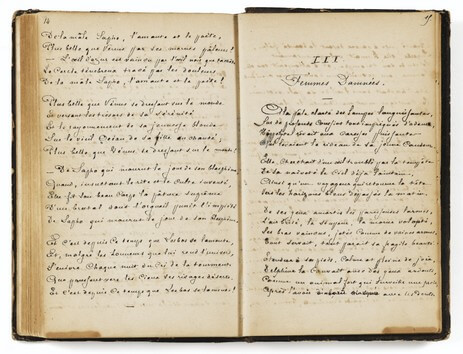 14
De la mâle Sapho, l'amante et le poète,
Plus belle que Vénus par ses mornes pâleurs !
— L'œil d'azur est vaincu par l'œil noir que
Le Cercle ténébreux tracé par les douleurs
De la mâle Sapho, l'amante et le poète !
Plus belle que Vénus se dressant sur le monde
Et versant les trésors de sa sérénité
Et le rayonnement de sa jeunesse blonde
Sur le vieil Océan de sa fille enchanté,
Plus belle que Vénus se dressant sur le monde !
— De Sapho qui mourut le jour de son blasphème
Quand, insultant le rite et le culte inventé,
Elle fit son beau corps la pâture suprême
D'un brutal dont l'orgueil punit l'impiété
De Sapho qui mourut le jour de son blasphème.
Et c'est depuis ce temps que Lesbos se lamente,
Et, malgré les honneurs que lui rend l'univers,
S'enivre chaque nuit du cri de la tourmente
Que poussent vers les Cieux ses rivages déserts.
Et c'est depuis ce temps que Lesbos se lamente !
III
Femmes Damnées.
A la pâle clarté des lampes languissantes,
Sur de profonds coussins tout imprégnés d'odeur
Hippolyte rêvait aux caresses puissantes
Qui levaient le rideau de sa jeune candeur.
Elle cherchait d'un œil troublé par la tempête
De sa naïveté le ciel déjà lointain,
Ainsi qu'un voyageur qui retourne la tête
Vers les horizons bleus dépassés le matin.
De ses yeux amortis les paresseuses larmes,
L'air brisé, la stupeur, la morne volupté,
Ses bras vaincus, jetés comme de vaines armes,
Tout servait, tout parait sa fragile beauté.
Etendue à ses pieds, calme et pleine de joie,
Delphine la couvait avec des yeux ardents,
Comme un animal fort qui surveille une proie,
Après l'avoir d'abord marquée avec les dents.